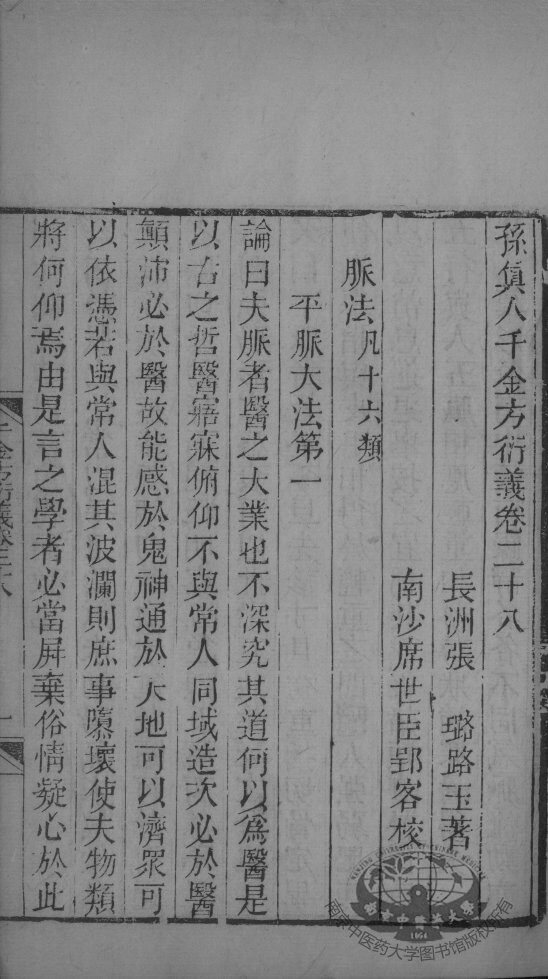 孫眞人千金方衍義卷二十八
長洲張 璐路玉著
南沙席世臣郢客校
脈法凡十六類
平脈大法第一
論曰夫脈者醫之大業也不深究其道何以爲醫是
以古之哲醫寤寐俯仰不與常人同域造次必於醫
顚沛必於醫故能感於鬼神通於天地可以濟眾可
以依憑若與常人混其波瀾則庶事隳壞使夫物類
將何仰焉由是言之學者必當屏棄俗情凝心於此
千金方衍義卷二十八
一
NANJING UNIVERSITY OF CHINESE MEDICINE
南京中醫藥大學
1954
南京中医药大学图书馆版权所有